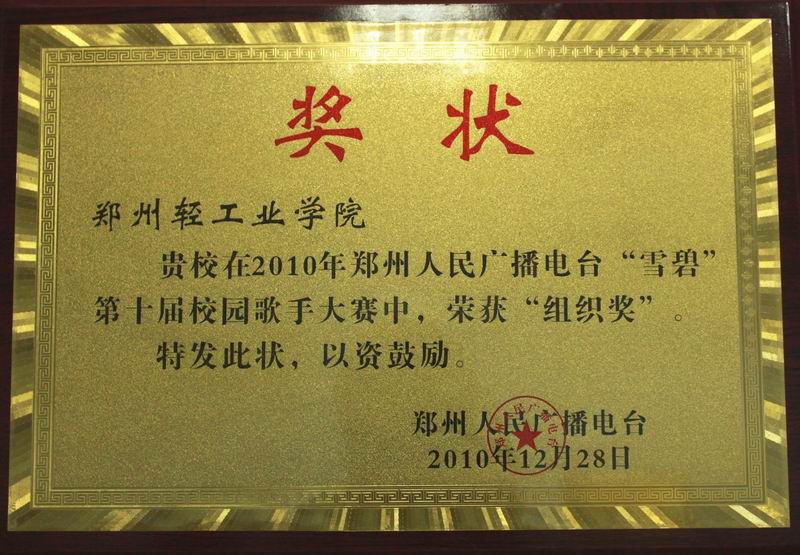 奖状
郑州轻工业学院
贵校在2010年郑州人民广播电台“雪碧”
第十届校园歌手大赛中，荣获“组织奖”。
特发此状，以资鼓励。
郑州人民广播电台
2010年12月28日
郑州人民广播电台